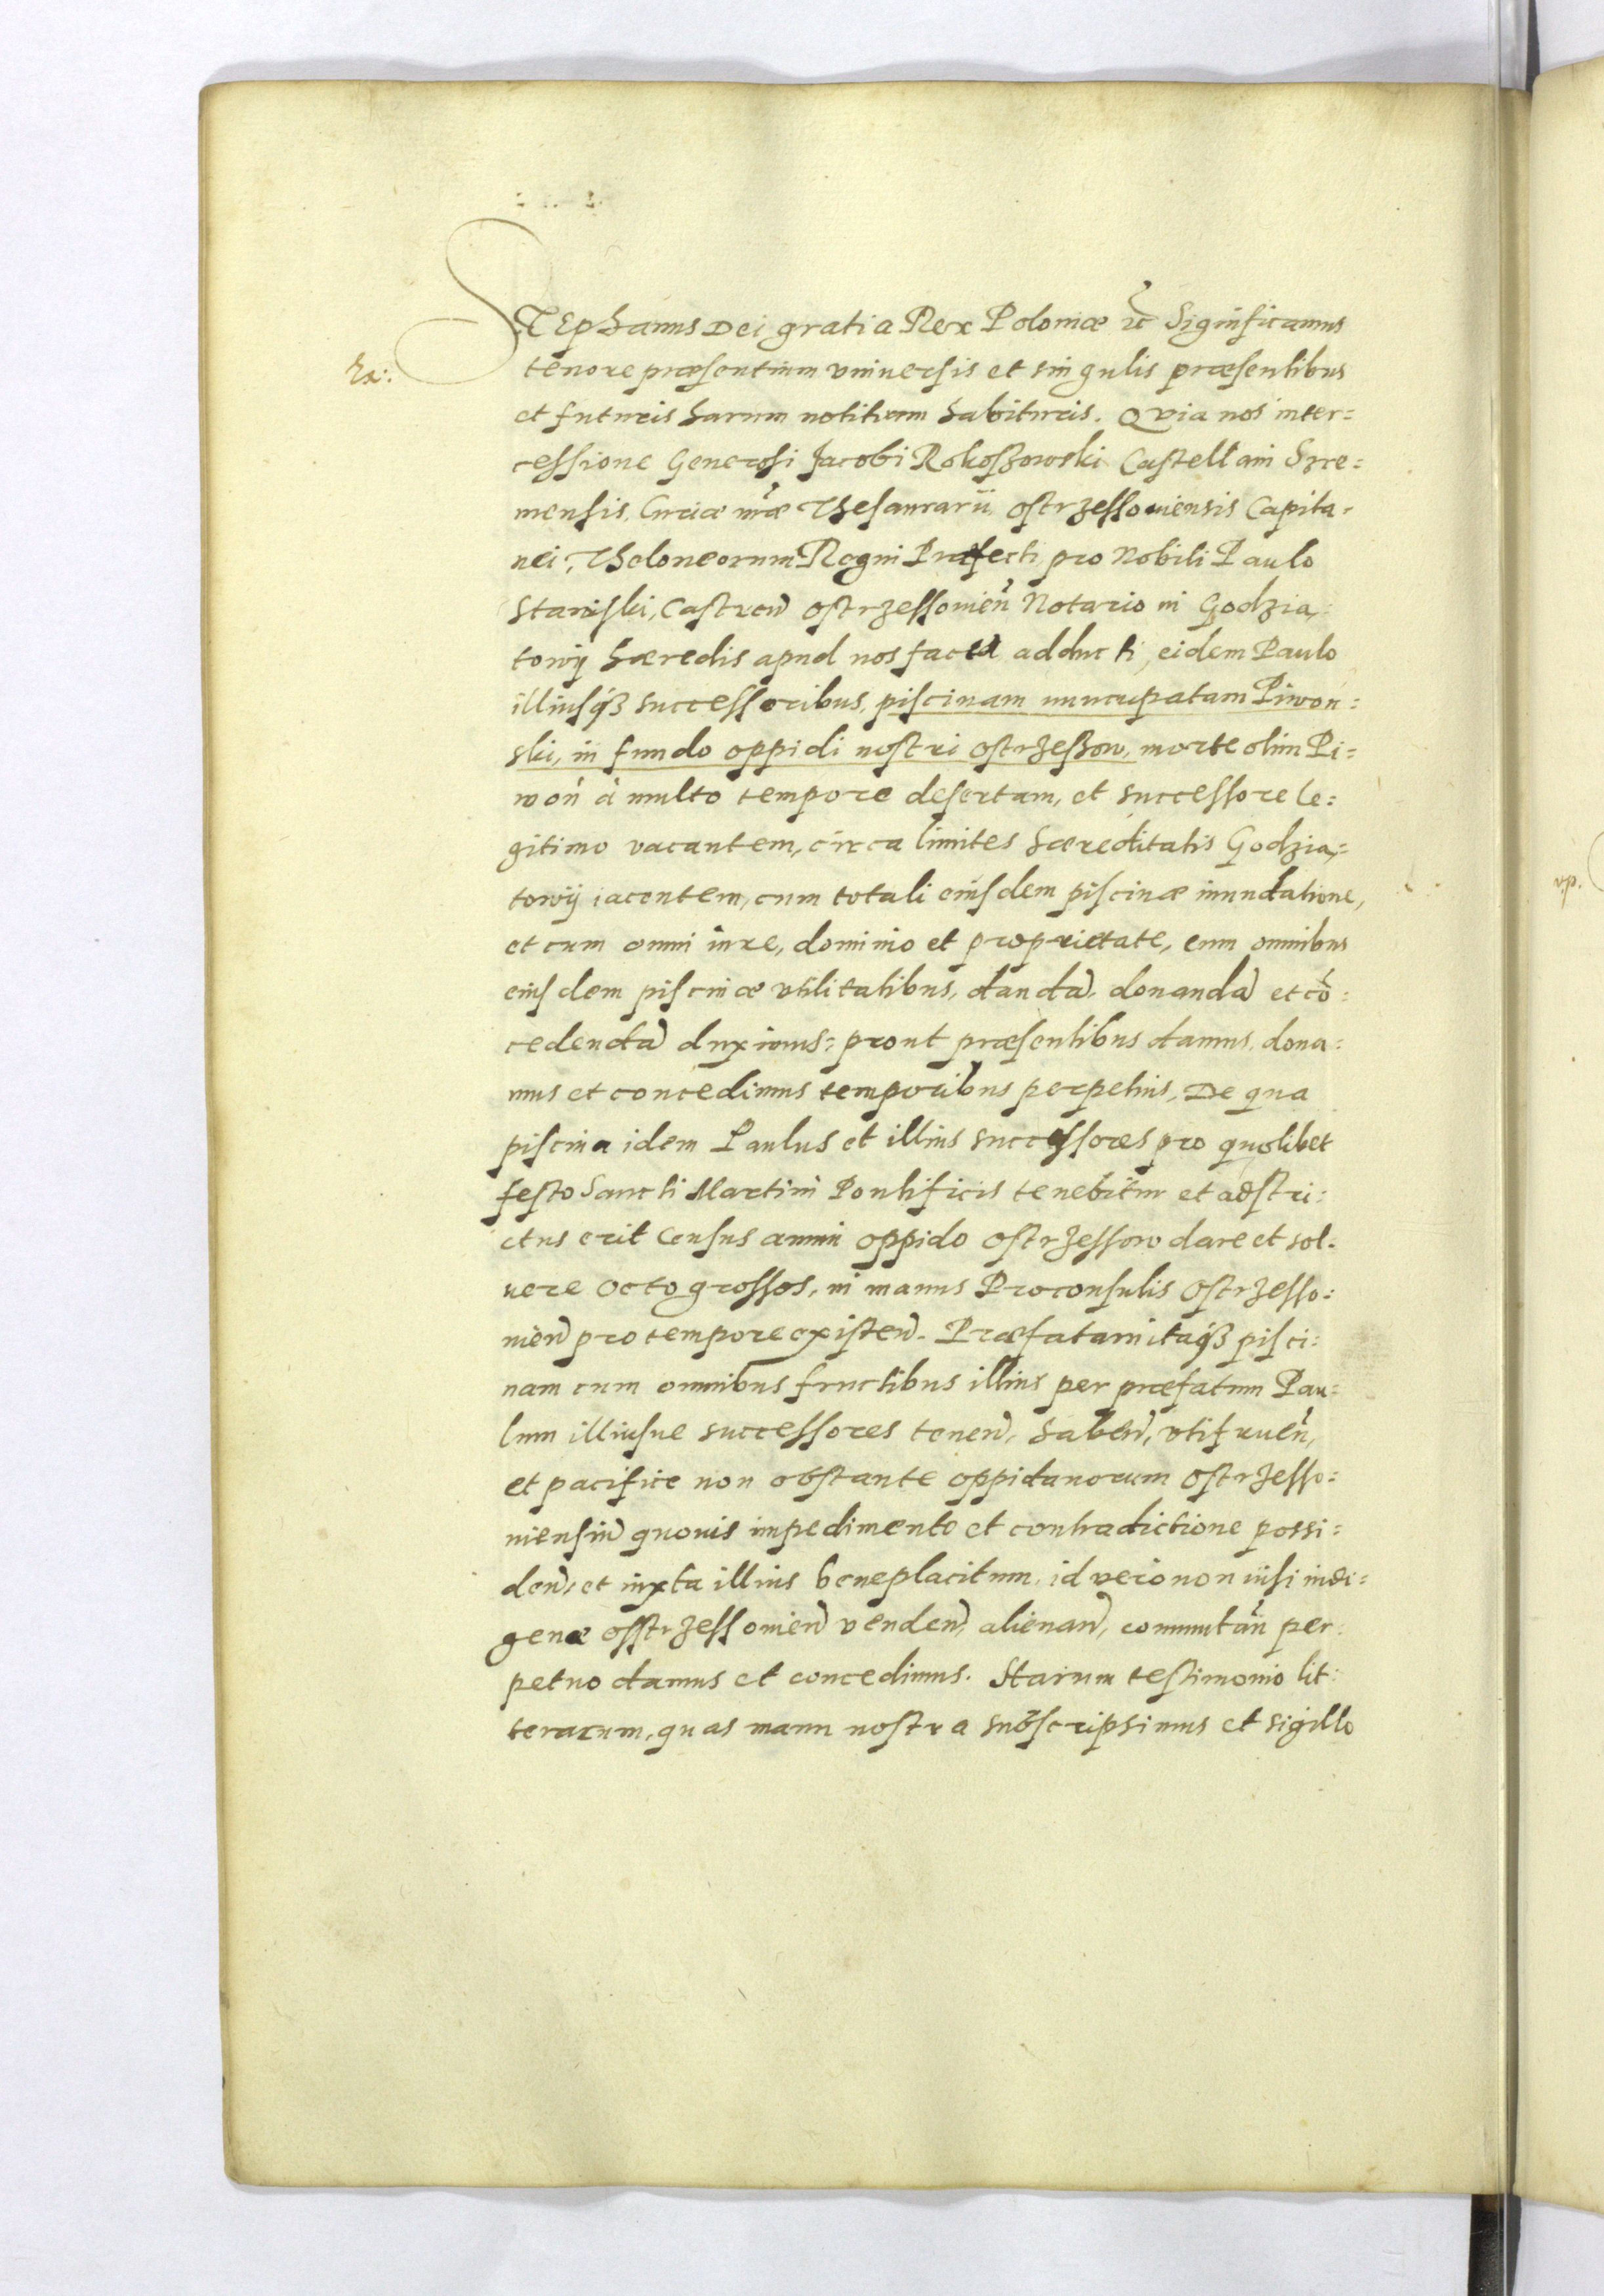 STEphanus Dei gratia Rex Poloniæ ꝛc̃ Significamus
Ex:
tenore præsentium vniuersis et singulis præsentibus
et futuris harum notitiam habituris. Qvia nos inter=
cessione Generosi Jacobi Rokoszowski Castellani Szre=
mensis, Curiæ nr̃æ Thesaurarii, Ostrzessouiensis Capita=
nei, Theloneorum Regni Præfecti pro Nobili Paulo
Staniski, Castren̄ Ostrzessouien̄ Notario in Godzia=
towij hæredis apud nos facta adducti, eidem Paulo
illiusqꝫ successoribus, piscinam nuncupatam Piwon=
ski, in fundo oppidi nostri Ostrzeszow, morte olim Pi=
woń à multo tempore desertam, et successore le=
gitimo vacantem, circa limites hæreditatis Godzia=
towij iacentem, cum totali eiusdem piscinæ inundatione,
et cum omni iure, dominio et proprietate, cum omnibus
eiusdem piscinæ vtilitatibus, dandā, donandā et cō=
cedendā duximus: prout præsentibus damus, dona=
mus et concedimus temporibus perpetuis, De qua
piscina idem Paulus et illius successores pro quolibet
festo Sancti Martini Pontificis tenebitur et adstri=
ctus erit Census annui oppido Ostrzessow dare et sol=
uere octo grossos, in manus Proconsulis Ostrzesso=
uien̄ pro tempore existen̄. Præfatam itaqꝫ pisci=
nam cum omnibus fructibus illius per præfatum Pau=
lum illiusue successores tenen̄, haben̄, vtifruen̄,
et pacifice non obstante oppidanorum Ostrzesso=
uiensiū quouis impedimento et contradictione possi=
den̄, et iuxta illius beneplacitum, id verò non nisi indi=
genæ Osstrzessouien̄ venden̄, alienan̄, commutan̄ per=
petuo damus et concedimus. Harum testimonio lit=
terarum, quas manu nostra subscripsimus et sigillo
v.p.